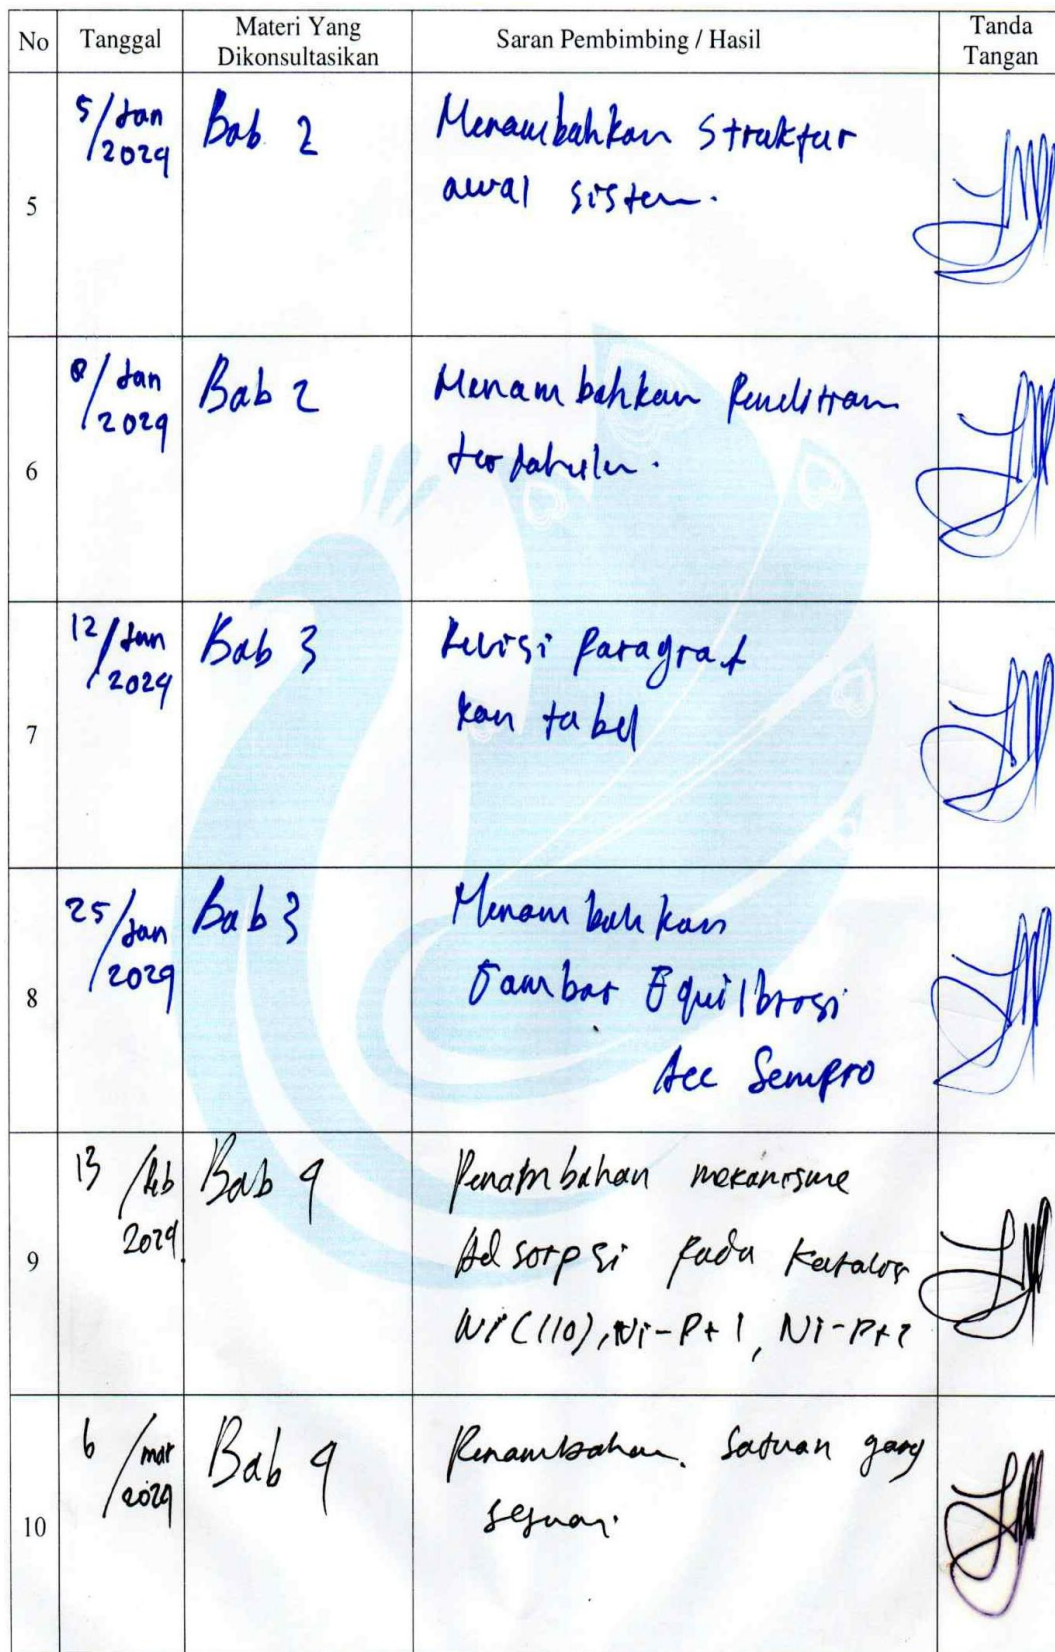 No Tanggal Materi Yang Dikonsultasikan Saran Pembimbing / Hasil Tanda Tangan
5 5/Jan 2024 Bab 2 Menambahkan Struktur
awal sistem.
6 8/Jan 2024 Bab 2 Menambahkan Penelitian
terdahulu.
7 12/Jan 2024 Bab 3 Revisi Paragraf
dan tabel
8 25/Jan 2024 Bab 3 Menambahkan
Gambar Equilbrasi
Acc Sempro
9 13/Feb 2024 Bab 4 Penambahan mekanisme
Adsorpsi pada Katalos
Ni(110), Ni-Pt 1, Ni-Pt 2
10 6/mar 2024 Bab 4 Penambahan satuan yang
sesuai.